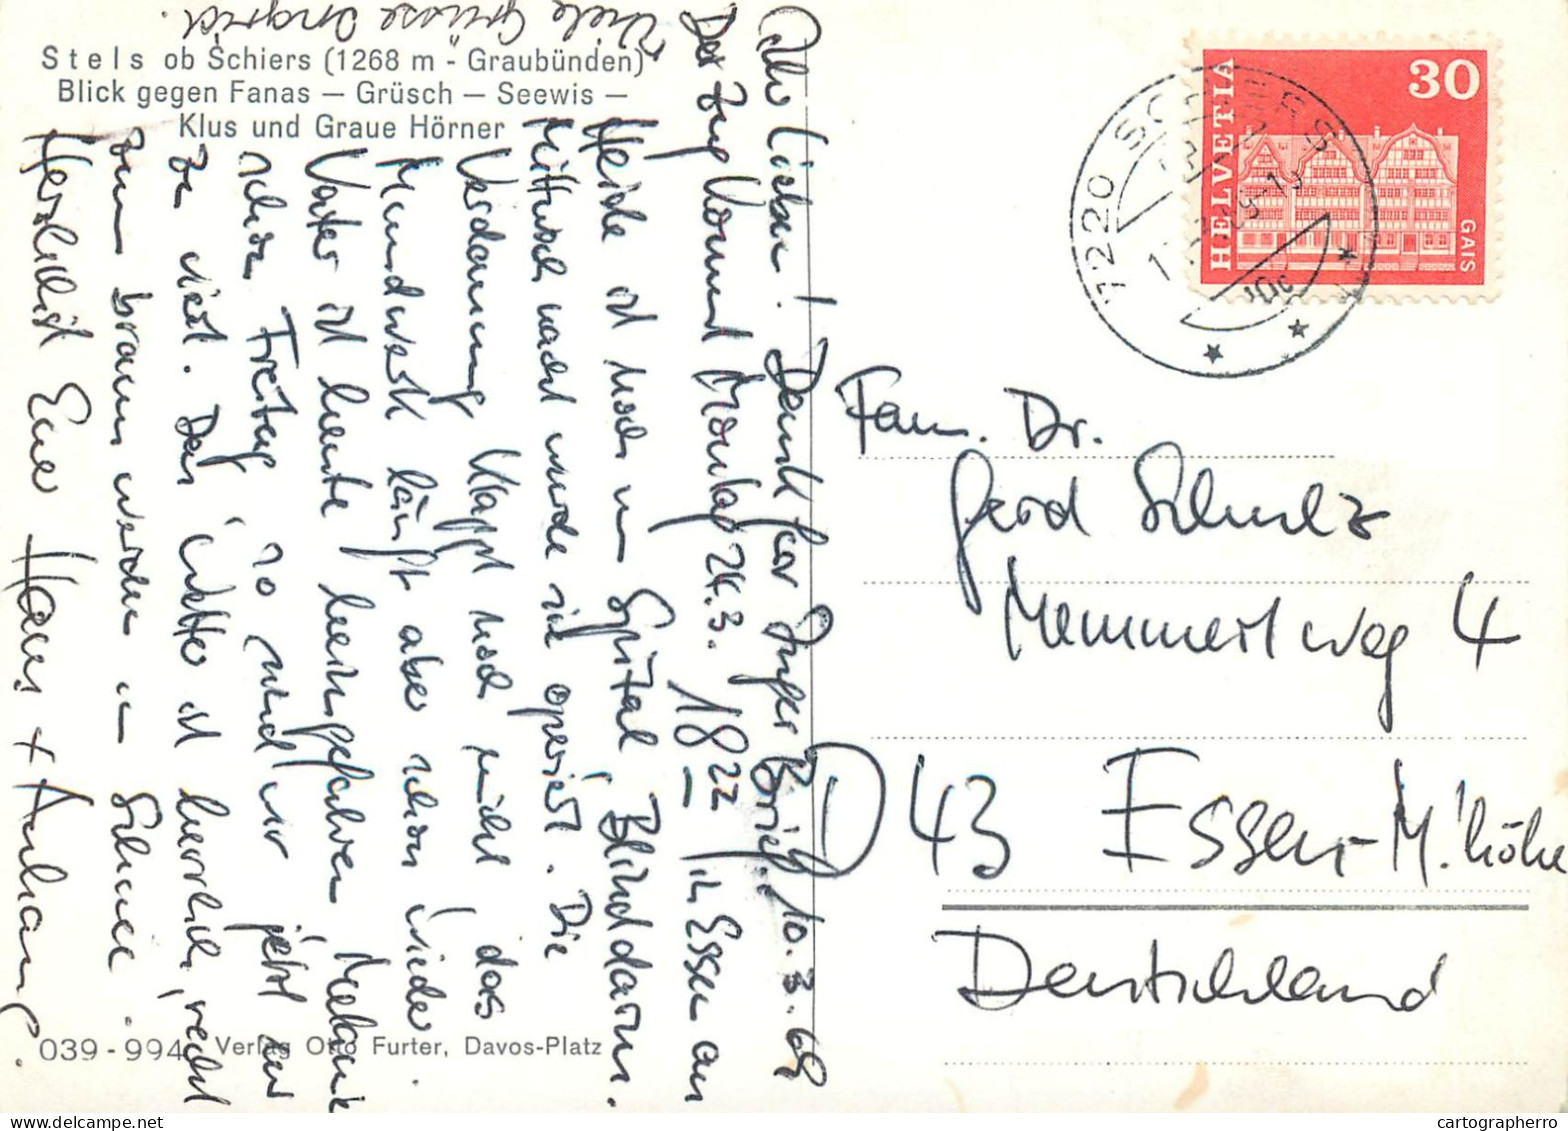 Stels ob Schiers (1268 m - Graubünden)
Blick gegen Fanas – Grüsch – Seewis –
Klus und Graue Hörner
Viele Grüsse Ingrid.
10.3.69
Ihr Lieben! Dank für Brief.
Der Zug kommt Montag 24.3. 18 22 in Essen an
Heide ist noch im Spital, Blinddarm.
Mittwoch nacht wurde sie operiert. Die
Verdauung klappt noch nicht, das
Mundwerk läuft aber schon wieder.
Vater ist heute heimgefahren,
schon Freitag, so sind wir jetzt nur
zu viert. Das Wetter ist herrlich, recht
zum braun werden im Schnee.
Herzlichst Euer Hans + Anhang.
039-994 Verlag Otto Furter, Davos-Platz
HELVETIA
30
GAIS
7220 SCHIERS
Fam. Dr.
Gerd Schulz
Memmertweg 4
D 43 Essen-M.'höhe
Deutschland
cartographerro